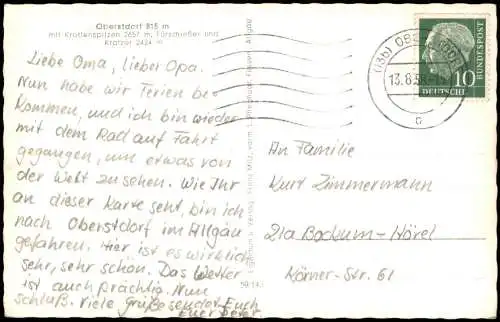 Oberstdorf 815 m
mit Krottenspitzen 2657 m, Fürschießer und
Kratzer 2424 m
Liebe Oma, lieber Opa.
Nun habe wir Ferien be-
kommen, und ich bin wieder
mit dem Rad auf Fahrt
gegangen, um etwas von
der Welt zu sehen. Wie Ihr
an dieser Karte seht, bin ich
nach Oberstdorf im Allgäu
gefahren. Hier ist es wirklich
sehr, sehr schön. Das Wetter
ist auch prächtig. Nun
Schluß. Viele Grüße sendet Euch
Euer Peter
Eigentum u. Verlag Franz Milz, vorm.
Füssen, Allgäu
59 143
(13b)
13.8.58
c
10
DEUTSCHE
BUNDESPOST
An Familie
Kurt Zimmermann
21a Bockum-Hövel
Körner-Str. 61